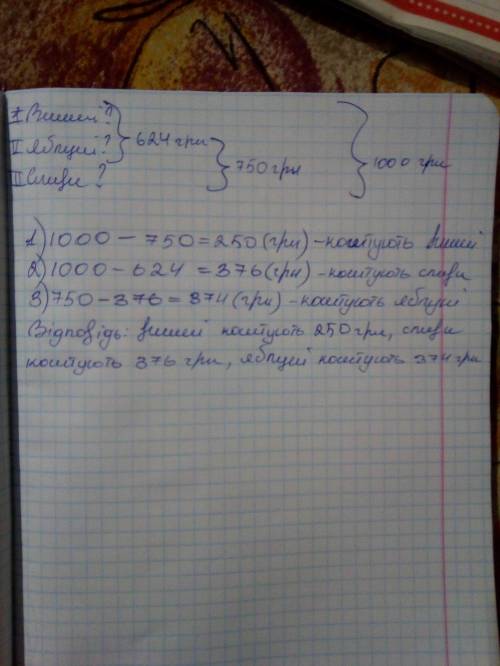 I Вишні ? } 624 грн } 1000 грн
II Яблуні ? } 750 грн
III Сливи ?
1) 1000 - 750 = 250 (грн) - коштують вишні
2) 1000 - 624 = 376 (грн) - коштують сливи
3) 750 - 376 = 374 (грн) - коштують яблуні
Відповідь: вишні коштують 250 грн, сливи
коштують 376 грн, яблуні коштують 374 грн